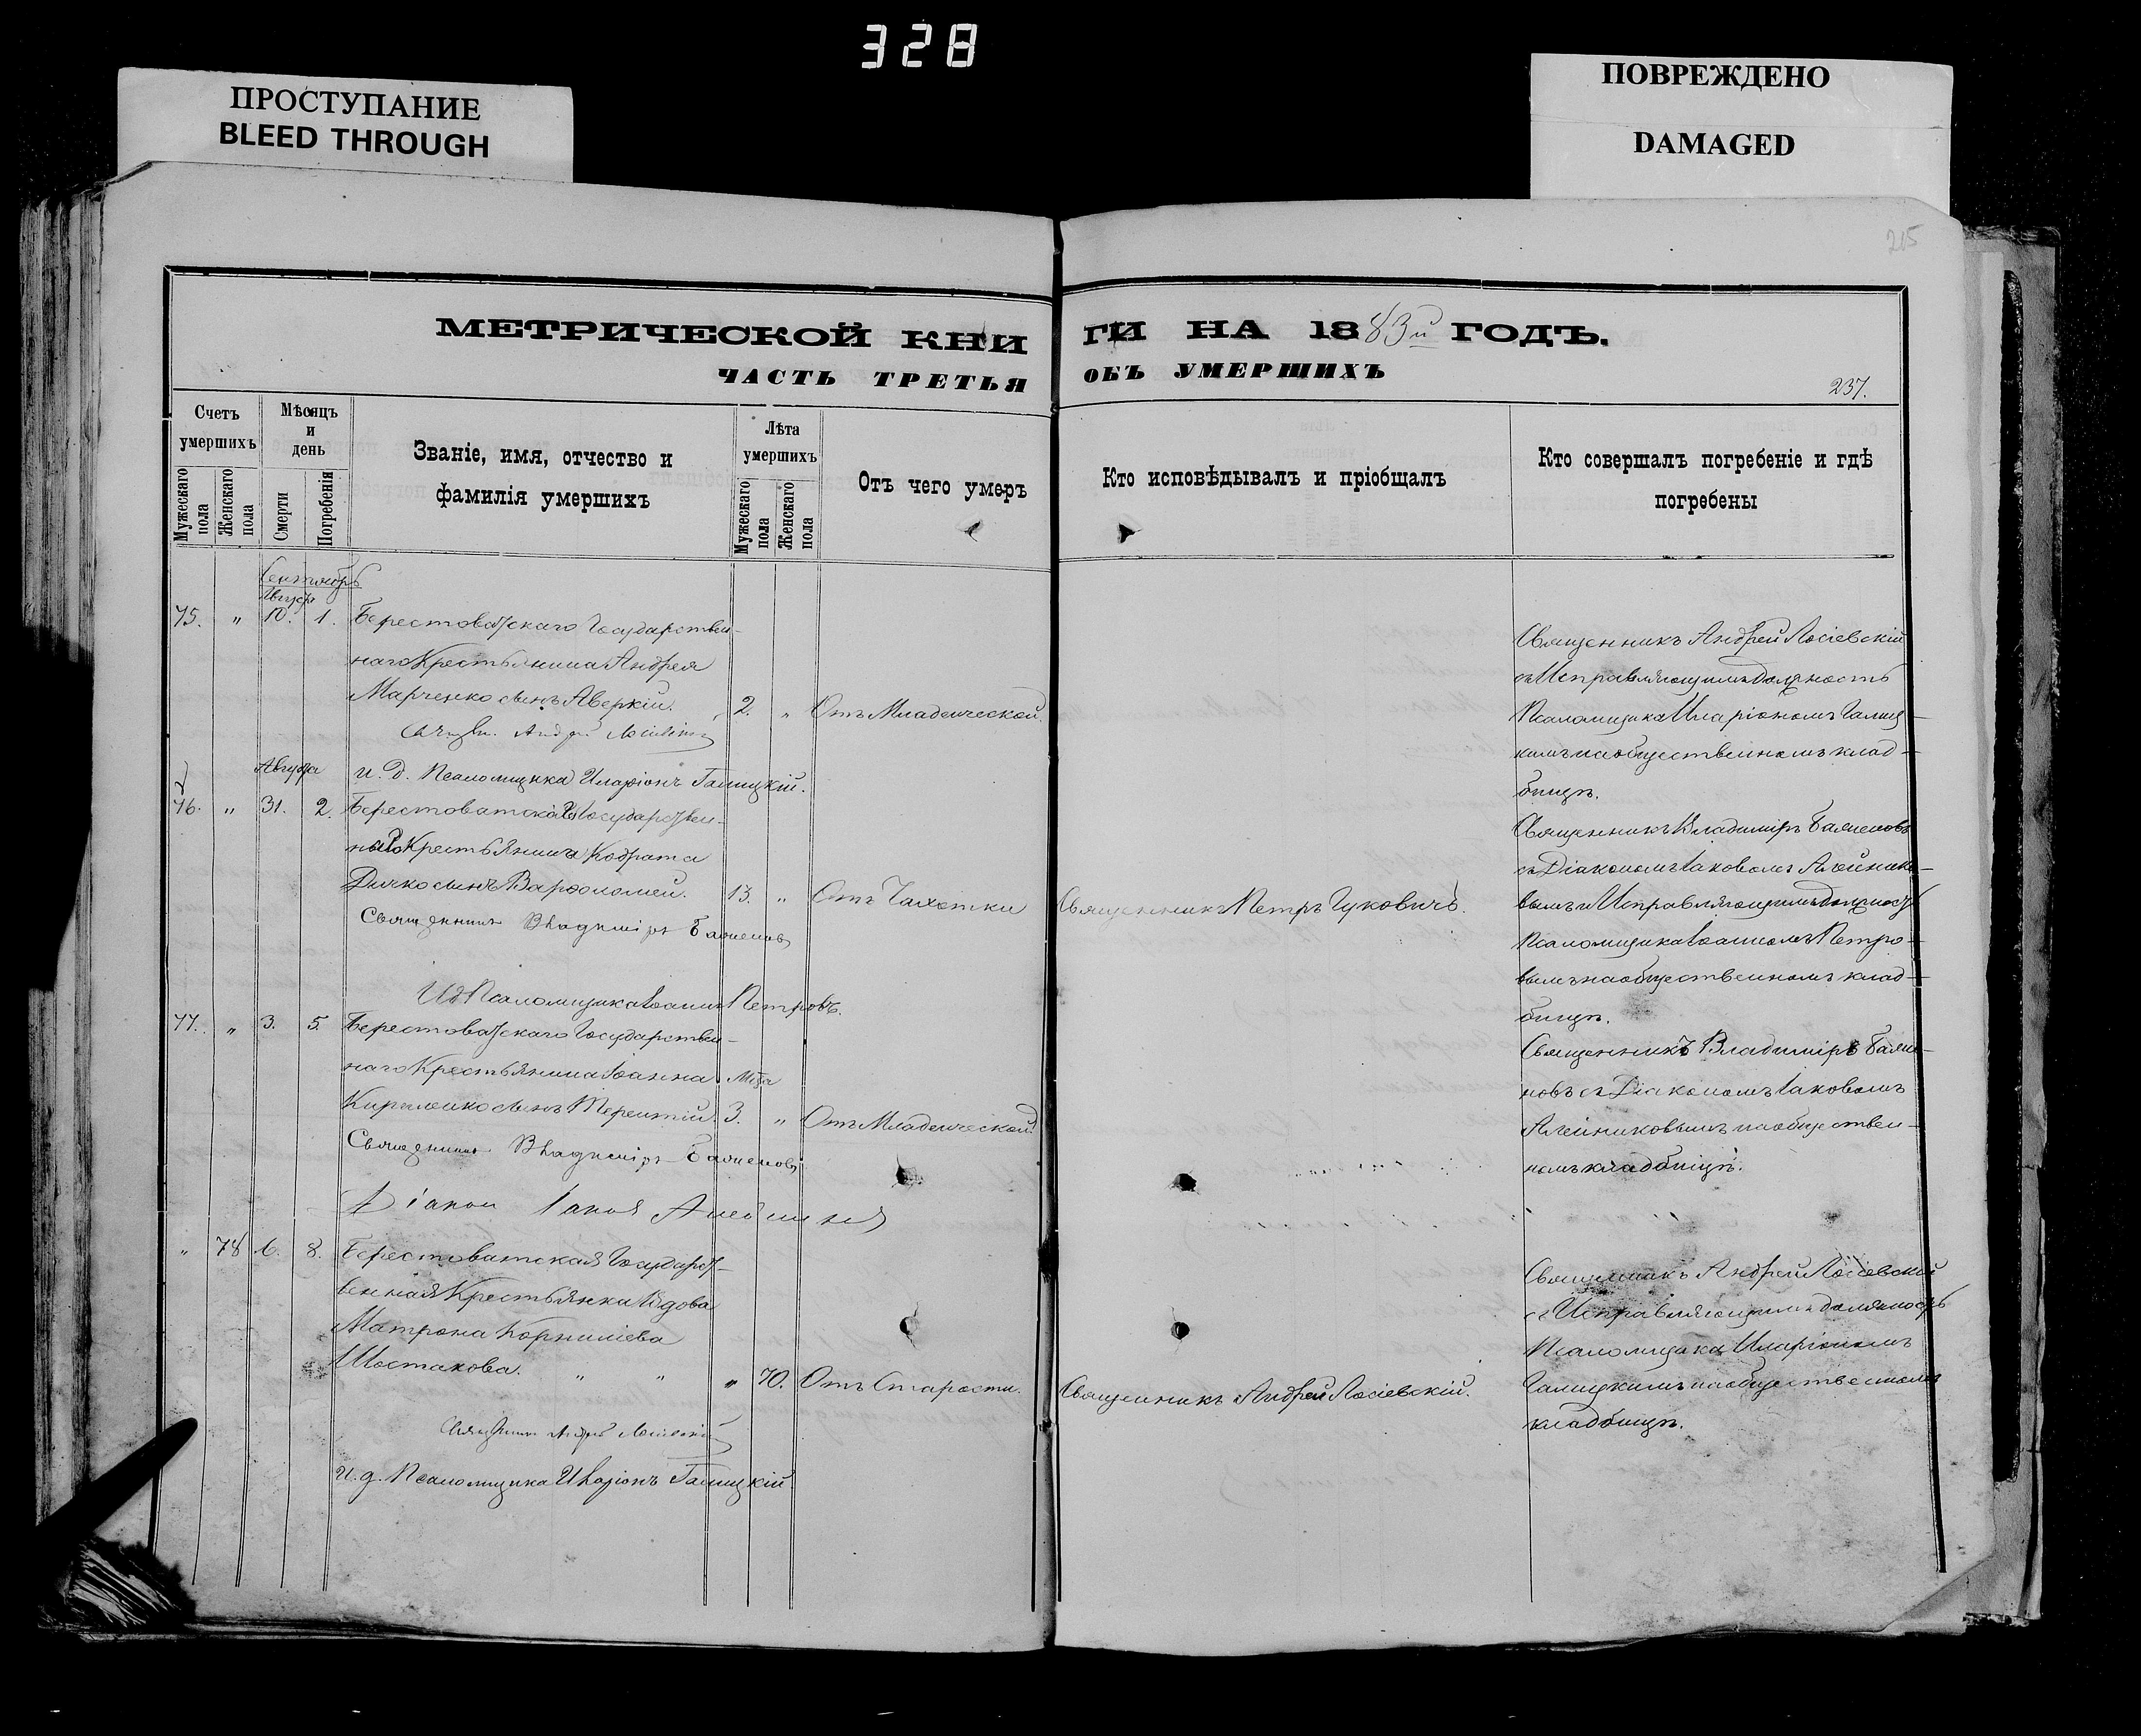 328
ПРОСТУПАНИЕ
BLEED THROUGH
ПОВРЕЖДЕНО
DAMAGED
215
МЕТРИЧЕСКОЙ КНИ
ГИ НА 1883й ГОДЪ.
ЧАСТЬ ТРЕТЬЯ
ОБЪ УМЕРШИХЪ
237.
Счетъ умершихъ
Мужескаго пола
Женскаго пола
Мѣсяцъ и день
Смерти
Погребенія
Званіе, имя, отчество и
фамилія умершихъ
Лѣта умершихъ
Мужескаго пола
Женскаго пола
Отъ чего умеръ
Кто исповѣдывалъ и пріобщалъ
Кто совершалъ погребеніе и гдѣ
погребены
Сентябрь
75. " 10. 1. Берестоватскаго Государствен-
наго Крестьянина Андрея
Марченко сынъ Аверкій. 2. " Отъ Младенческой.
Андрей Лосіевскій
и. д. Псаломщика Иларіонъ Галицкій.
Священникъ Андрей Лосіевскій
съ Исправляющимъ Должность
Псаломщика Иларіономъ Галиц-
кимъ на общественномъ клад-
бищѣ.
Августа
76. " 31. 2. Берестоватскаго Государствен-
наго Крестьянина Кодрата
Дичко сынъ Варѳоломей. 13. " Отъ Чахотки
Священникъ Владиміръ
Ид Псаломщика Іоаннъ Петровъ.
Священникъ Петръ Чуковичъ.
Священникъ Владиміръ
съ Діакономъ Іаковомъ Алейнико-
вымъ и Исправляющимъ Должность
Псаломщика Іоанномъ Петро-
вымъ на общественномъ клад-
бищѣ.
77. " 3. 5. Берестоватскаго Государствен-
наго Крестьянина Іоанна
Кириленко сынъ Терентій. 3. " Отъ Младенческой.
Священникъ Владиміръ
Діаконъ Іаковъ
Священникъ Владиміръ
новъ съ Діакономъ Іаковомъ
Алейниковымъ на обществен-
номъ кладбищѣ.
" 78 6. 8. Берестоватская Государст-
венная Крестьянка Вдова
Матрона Корнилiева
Шостакова. " " " 70. Отъ Старости.
Священникъ Андрей Лосіевскій
и. д. Псаломщика Иларіонъ Галицкій
Священникъ Андрей Лосіевскій.
Священникъ Андрей Лосіевскій
съ Исправляющимъ Должность
Псаломщика Иларіономъ
Галицкимъ на общественномъ
кладбищѣ.